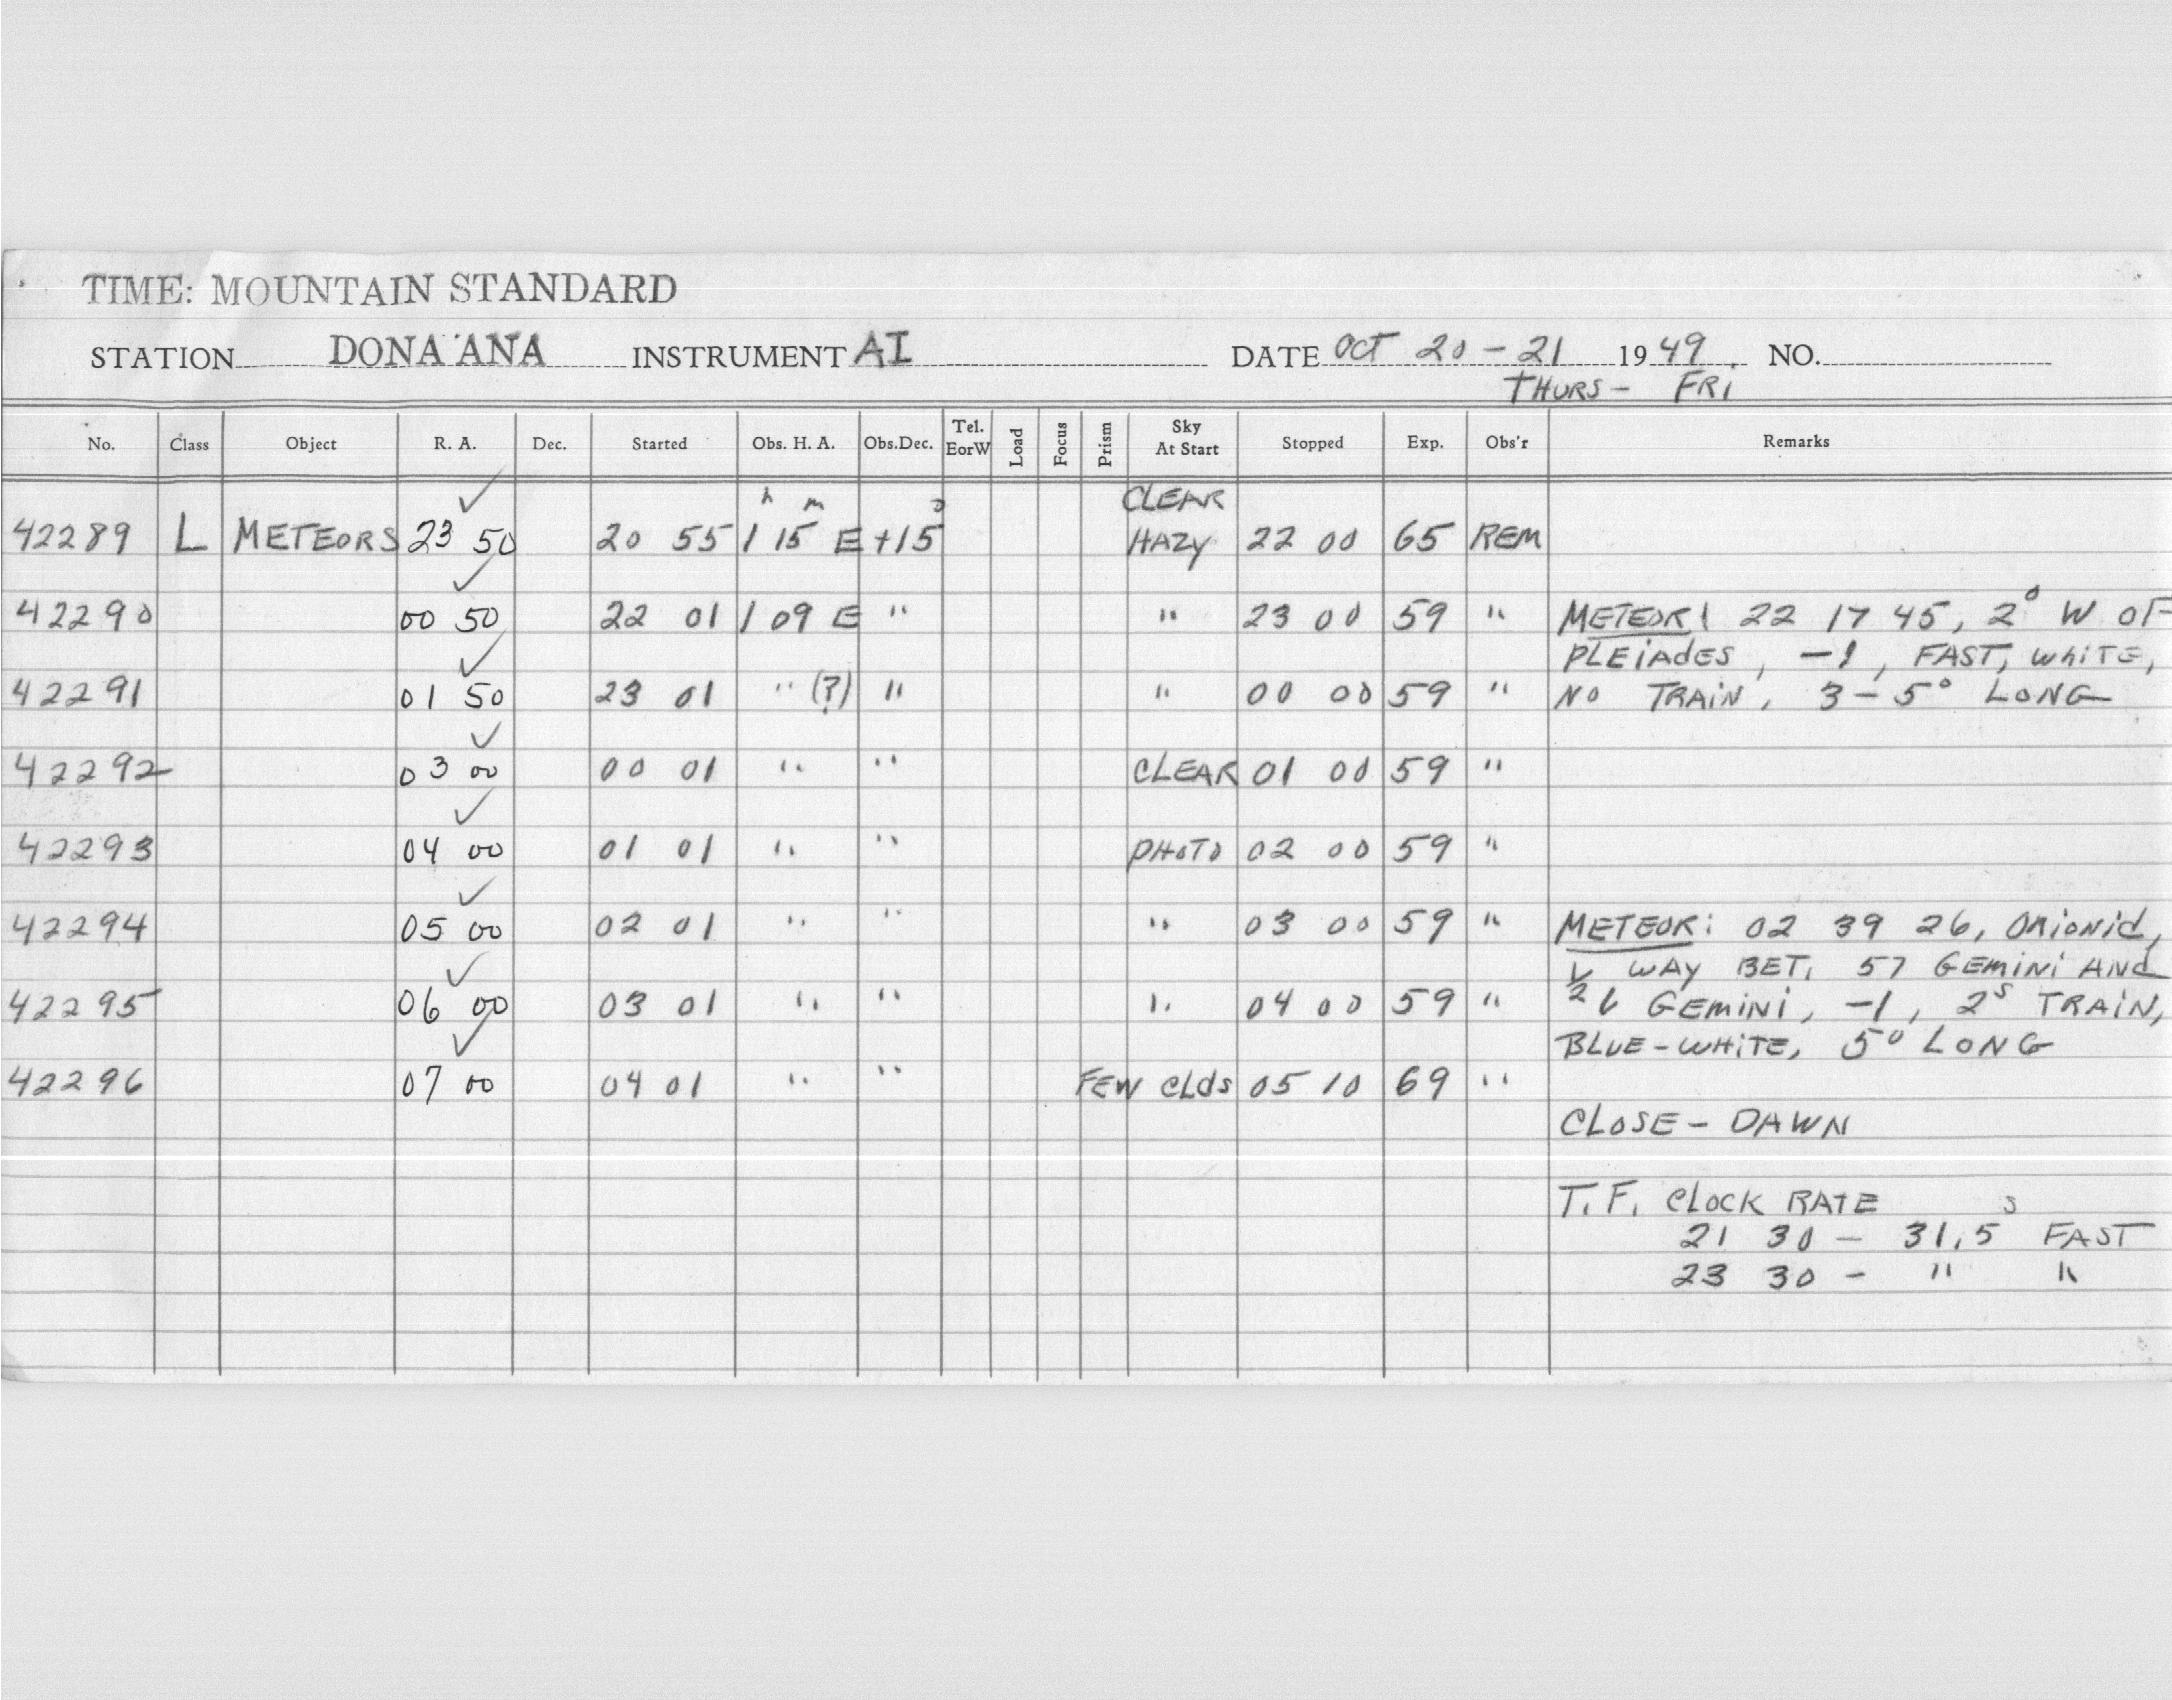 TIME: MOUNTAIN STANDARD
STATION DONA ANA INSTRUMENT AI DATE OCT 20 - 21 1949 NO.
THURS - FRI
No. Class Object R. A. Dec. Started Obs. H. A. Obs.Dec. Tel. EorW Load Focus Prism Sky At Start Stopped Exp. Obs'r Remarks
h m o CLEAR
42289 L METEORS 23 50 20 55 1 15 E +15 HAZY 22 00 65 REM
42290 00 50 22 01 1 09 E " " 23 00 59 " METEOR: 22 17 45, 2° W OF
PLEIADES, -1, FAST, WHITE,
42291 01 50 23 01 " (?) " " 00 00 59 " NO TRAIN, 3 - 5° LONG
42292 03 00 00 01 " " CLEAR 01 00 59 "
42293 04 00 01 01 " " PHOTO 02 00 59 "
42294 05 00 02 01 " " " 03 00 59 " METEOR: 02 39 26, ORIONID,
½ WAY BET. 57 GEMINI AND
42295 06 00 03 01 " " " 04 00 59 " GEMINI, -1, 2s TRAIN,
BLUE-WHITE, 5° LONG
42296 07 00 04 01 " " FEW CLDS 05 10 69 "
CLOSE - DAWN
T.F. CLOCK RATE
21 30 - 31.5s FAST
23 30 - " "